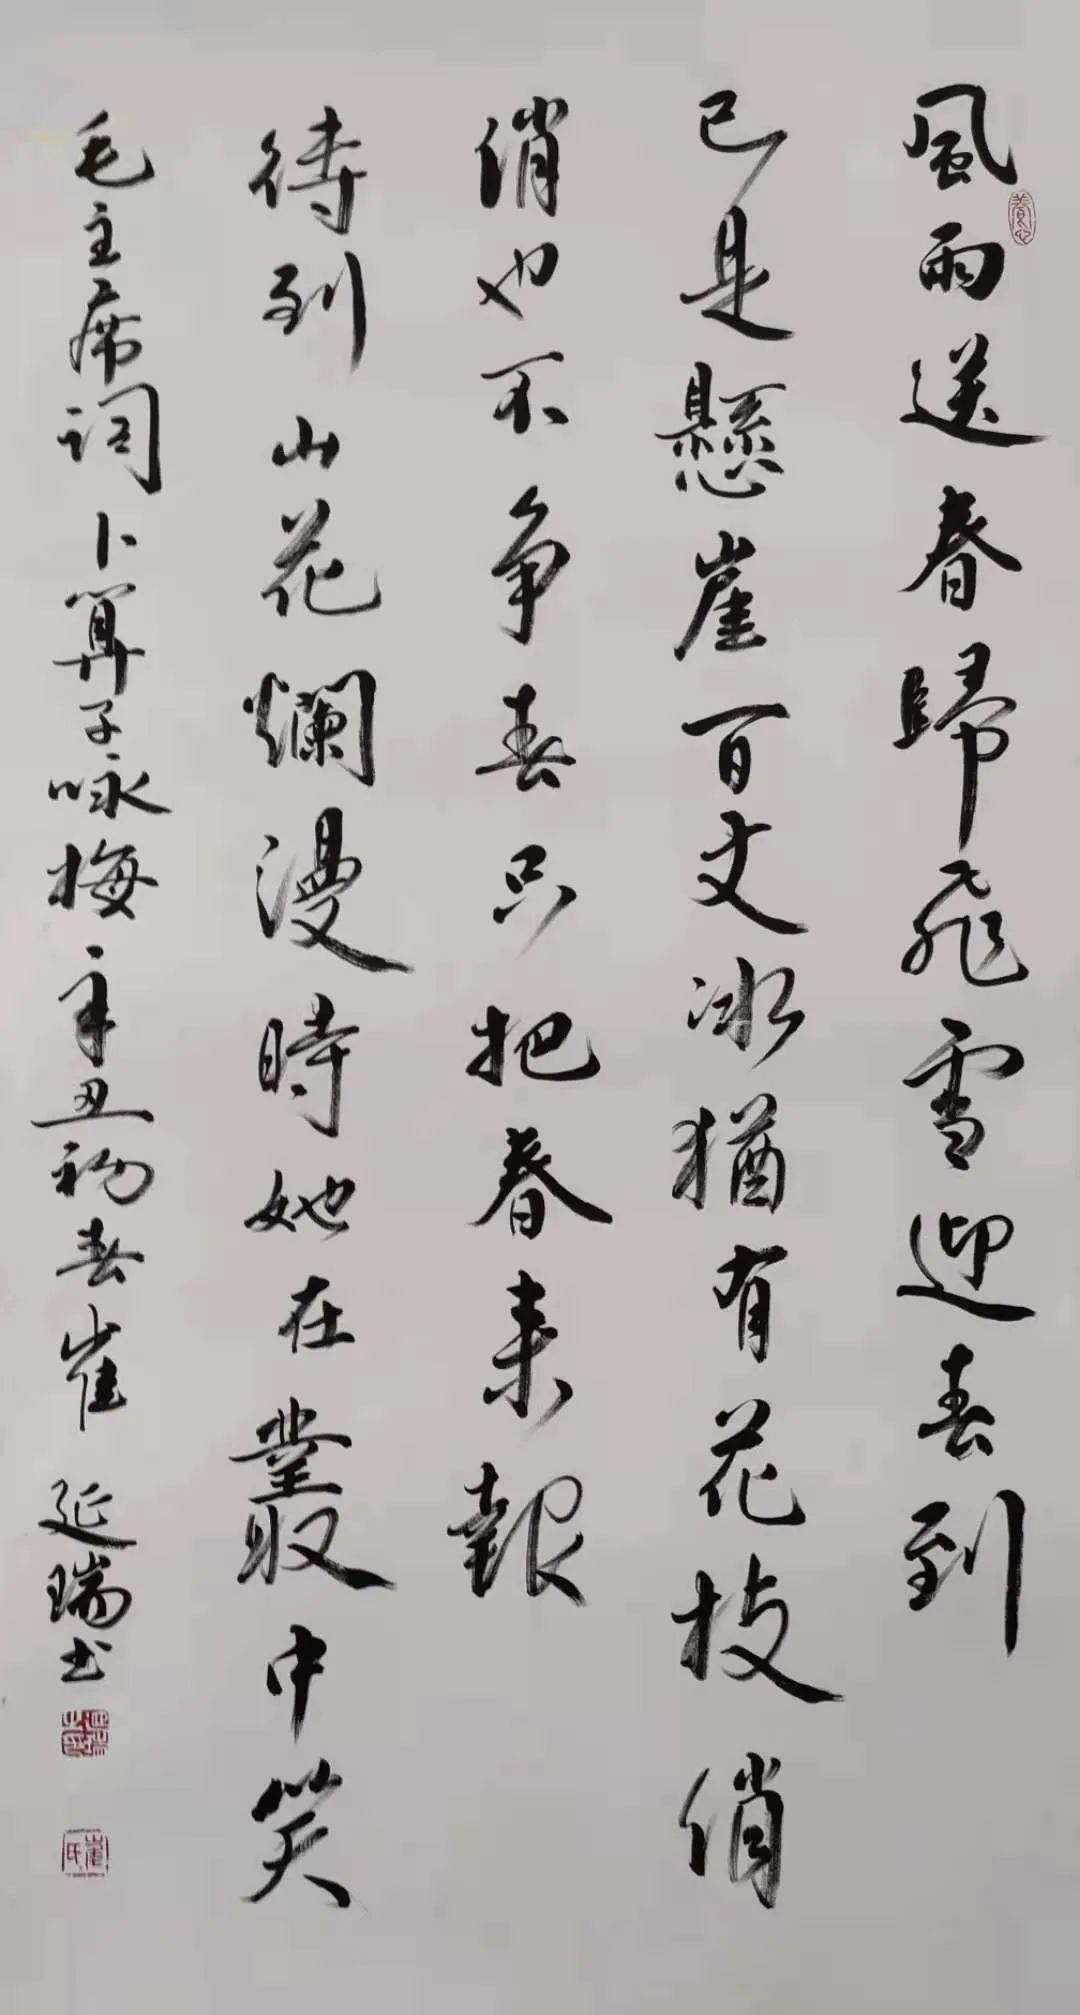 風雨送春歸飛雪迎春到
養心
已是懸崖百丈冰猶有花枝俏
俏也不争春只把春来報
待到山花爛漫時她在叢中笑
毛主席詞卜算子咏梅辛丑初春崔延瑞书
崔氏